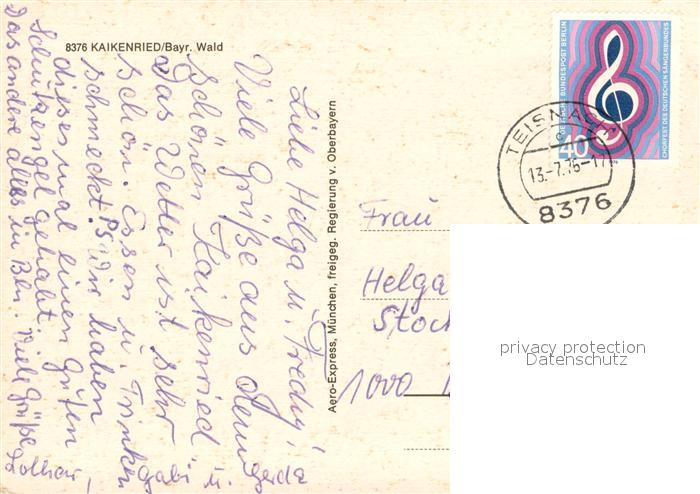 8376 KAIKENRIED/Bayr. Wald
Liebe Helga u. Fredy!
Viele Grüße aus dem
schönen Kaikenried
Das Wetter ist sehr
schön. Essen u. Trinken
schmeckt. PS Wir haben
diesesmal einen Guten
Schutzengel gehabt.
Das andere alles in Bln. Viele Grüße
Gerda
Gabi u.
Lothar,
Aero-Express, München, freigeg. Regierung v. Oberbayern
DEUTSCHE BUNDESPOST BERLIN
CHORFEST DES DEUTSCHEN SÄNGERBUNDES
40
TEISNACH
13.-7.76-17
8376
Frau
Helga
Stock
1000
privacy protection
Datenschutz